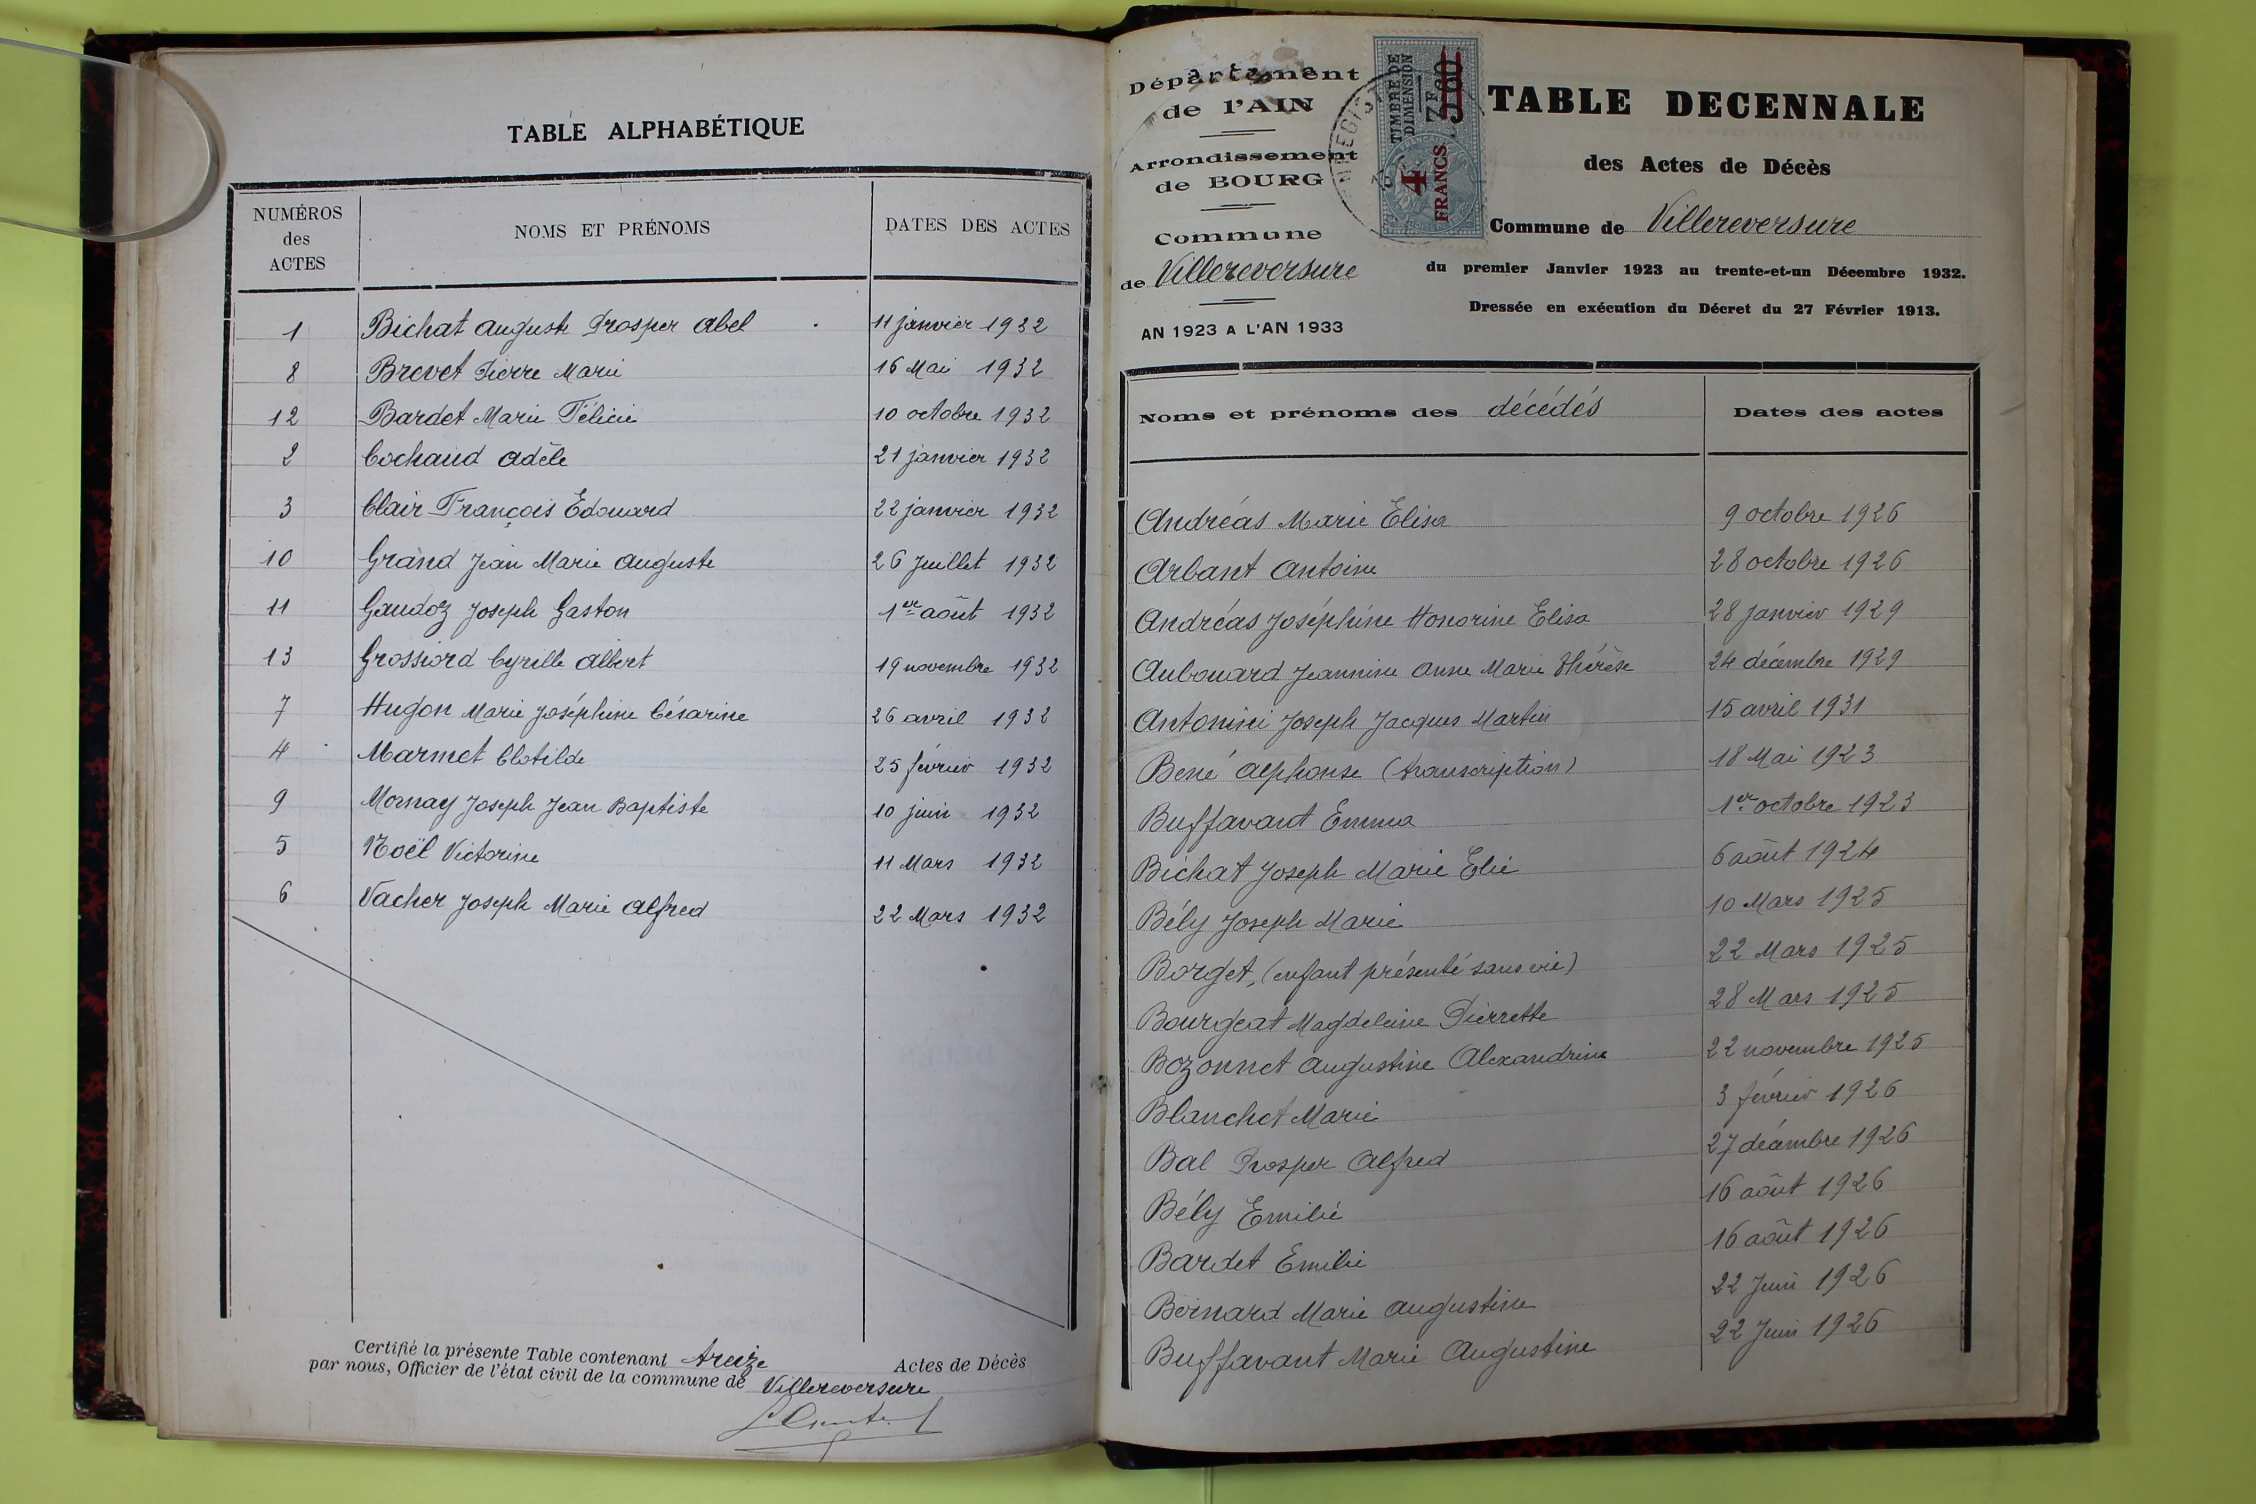 TABLE ALPHABÉTIQUE
NUMÉROS des ACTES NOMS ET PRÉNOMS DATES DES ACTES
1 Bichat Auguste Prosper Abel 11 janvier 1932
8 Brevet Pierre Marie 16 Mai 1932
12 Bardet Marie Félicie 10 octobre 1932
2 Cochaud Adèle 21 janvier 1932
3 Clair François Edouard 22 janvier 1932
10 Grand Jean Marie Auguste 26 Juillet 1932
11 Gaudoz Joseph Gaston 1er août 1932
13 Grossiord Cyrille Albert 19 novembre 1932
7 Hugon Marie Joséphine Césarine 26 avril 1932
4 Marmet Clotilde 25 février 1932
9 Mornay Joseph Jean Baptiste 10 juin 1932
5 Noël Victorine 11 Mars 1932
6 Vacher Joseph Marie Alfred 22 Mars 1932
Certifié la présente Table contenant treize Actes de Décès
par nous, Officier de l'état civil de la commune de Villereversure
Département
de l'AIN
Arrondissement
de BOURG
Commune
de Villereversure
AN 1923 A L'AN 1933
TIMBRE DE DIMENSION
4 FRANCS
TABLE DECENNALE
des Actes de Décès
Commune de Villereversure
du premier Janvier 1923 au trente-et-un Décembre 1932.
Dressée en exécution du Décret du 27 Février 1913.
Noms et prénoms des décédés Dates des actes
Andréas Marie Elisa 9 octobre 1926
Arbant Antoine 28 octobre 1926
Andréas Joséphine Honorine Elisa 28 janvier 1929
Aubouard Jeannine Anne Marie Thérèse 24 décembre 1929
Antonini Joseph Jacques Martin 15 avril 1931
Bené Alphonse (transcription) 18 Mai 1923
Buffavant Emma 1er octobre 1923
Bichat Joseph Marie Elie 6 août 1924
Bély Joseph Marie 10 Mars 1925
Borget, (enfant présenté sans vie) 22 Mars 1925
Bourgeat Magdeleine Pierrette 28 Mars 1925
Bozonnet Augustine Alexandrine 22 novembre 1925
Blanchet Marie 3 février 1926
Bal Prosper Alfred 27 décembre 1926
Bély Emilie 16 août 1926
Bardet Emilie 16 août 1926
Bernard Marie Augustine 22 Juin 1926
Buffavant Marie Augustine 22 Juin 1926